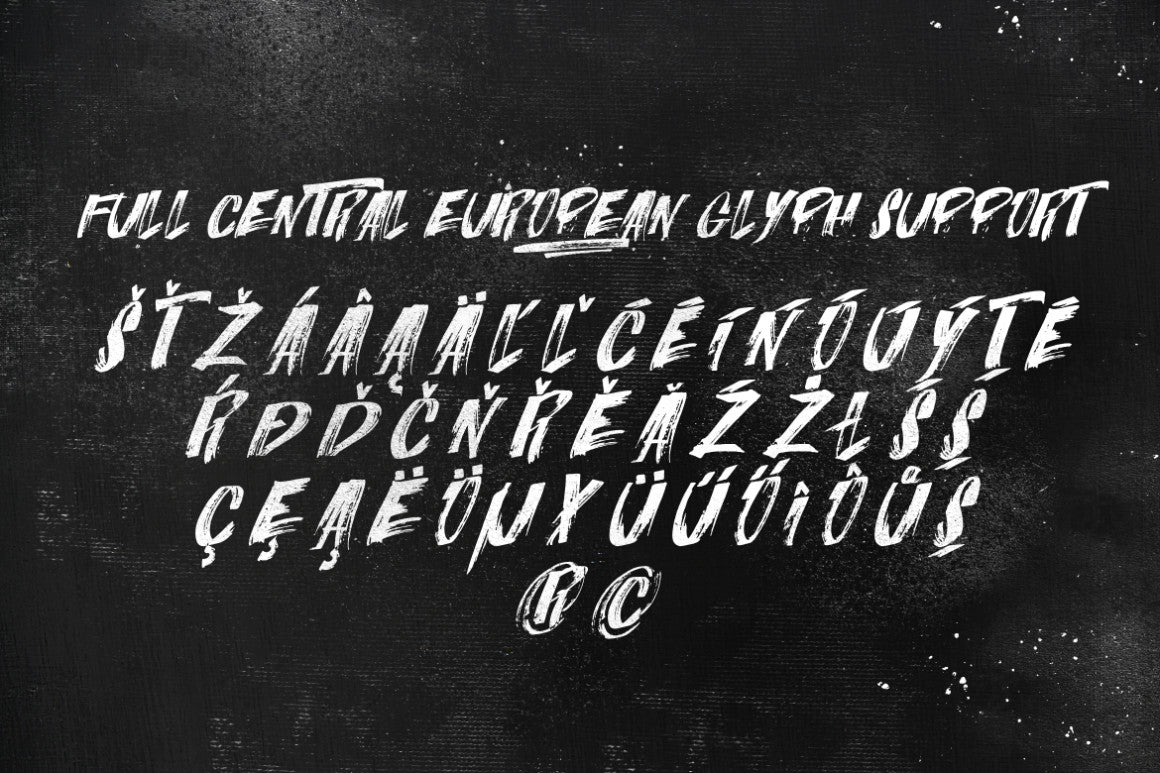 FULL CENTRAL EUROPEAN GLYPH SUPPORT
ŠŤŽÁÂĄÄĹĽĆÉÍŃÓÚÝŢÉ
ŔĐĎČŇŘĚĂŹŻŁŚŞ
ÇĘĄËÖµXÜŰŐÎÔŮŞ
® ©